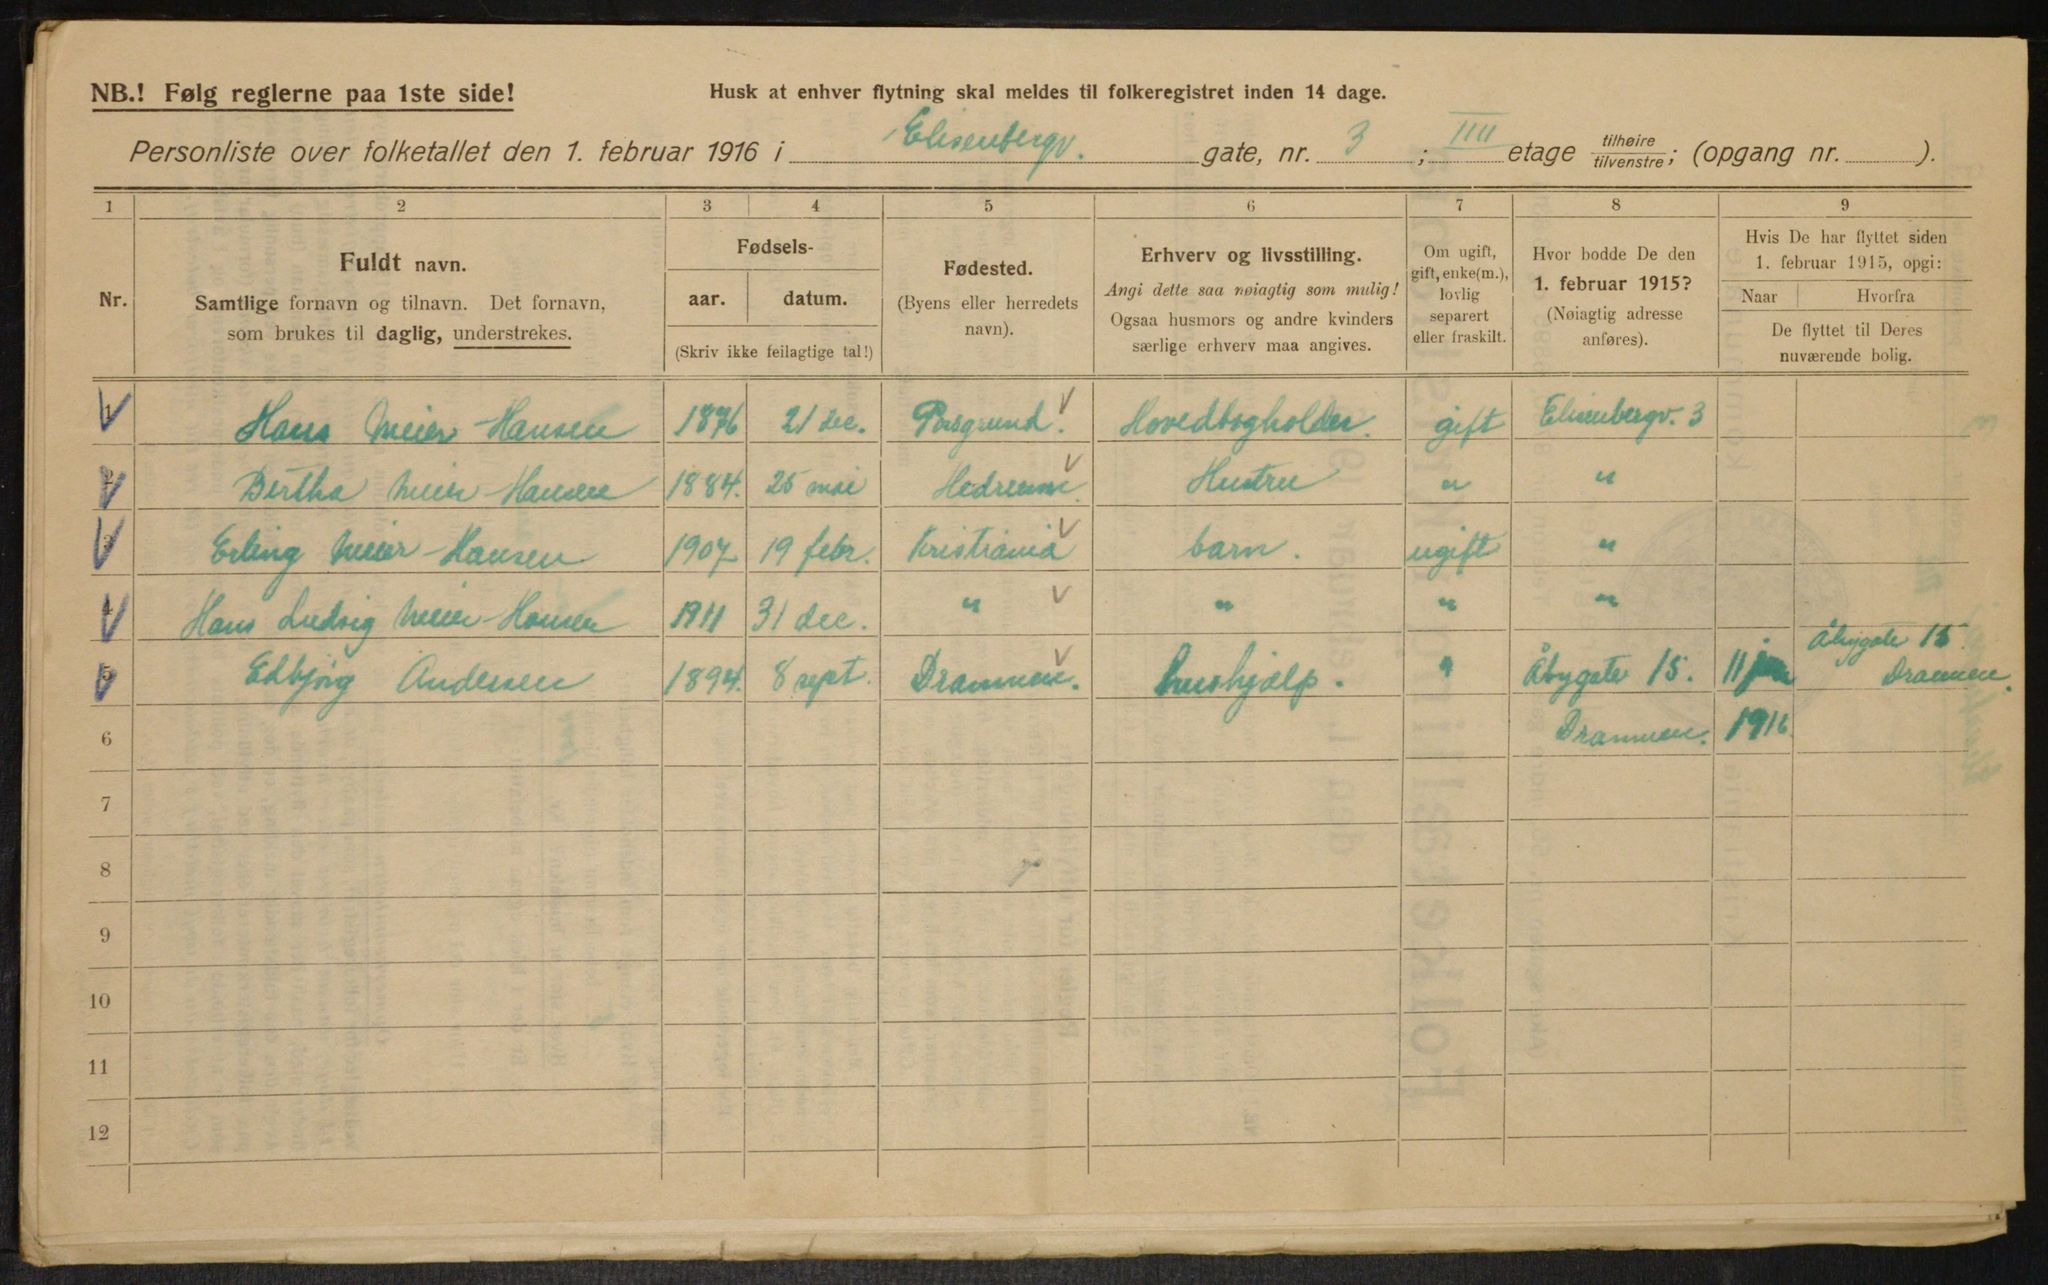 NB.! Følg reglerne paa 1ste side!
Husk at enhver flytning skal meldes til folkeregistret inden 14 dage.
Personliste over folketallet den 1. februar 1916 i Elisenbergv. gate, nr. 3 ; IIII etage tilhøire/tilvenstre; (opgang nr. ).
1 2 3 4 5 6 7 8 9
Nr.
Fuldt navn.
Samtlige fornavn og tilnavn. Det fornavn,
som brukes til daglig, understrekes.
Fødsels-
aar. datum.
(Skriv ikke feilagtige tal!)
Fødested.
(Byens eller herredets
navn).
Erhverv og livsstilling.
Angi dette saa nøiagtig som mulig!
Ogsaa husmors og andre kvinders
særlige erhverv maa angives.
Om ugift,
gift, enke(m.),
lovlig
separert
eller fraskilt.
Hvor bodde De den
1. februar 1915?
(Nøiagtig adresse
anføres).
Hvis De har flyttet siden
1. februar 1915, opgi:
Naar Hvorfra
De flyttet til Deres
nuværende bolig.
1 Hans Meier-Hansen 1876 21 dec. Porsgrund. Hovedbogholder. gift Elisenbergv. 3
2 Bertha Meier-Hansen 1884. 25 mai Hedrum. Hustru " "
3 Erling Meier-Hansen 1907 19 febr. Kristiania barn. ugift "
4 Hans Ludvig Meier-Hansen 1911 31 dec. " " " "
5 Edbjørg Andersen 1894. 8 sept. Drammen. hushjælp. " Åbygate 15. 11 jan Åbygate 15.
Drammen.
6 Drammen. 1916.
7
8
9
10
11
12